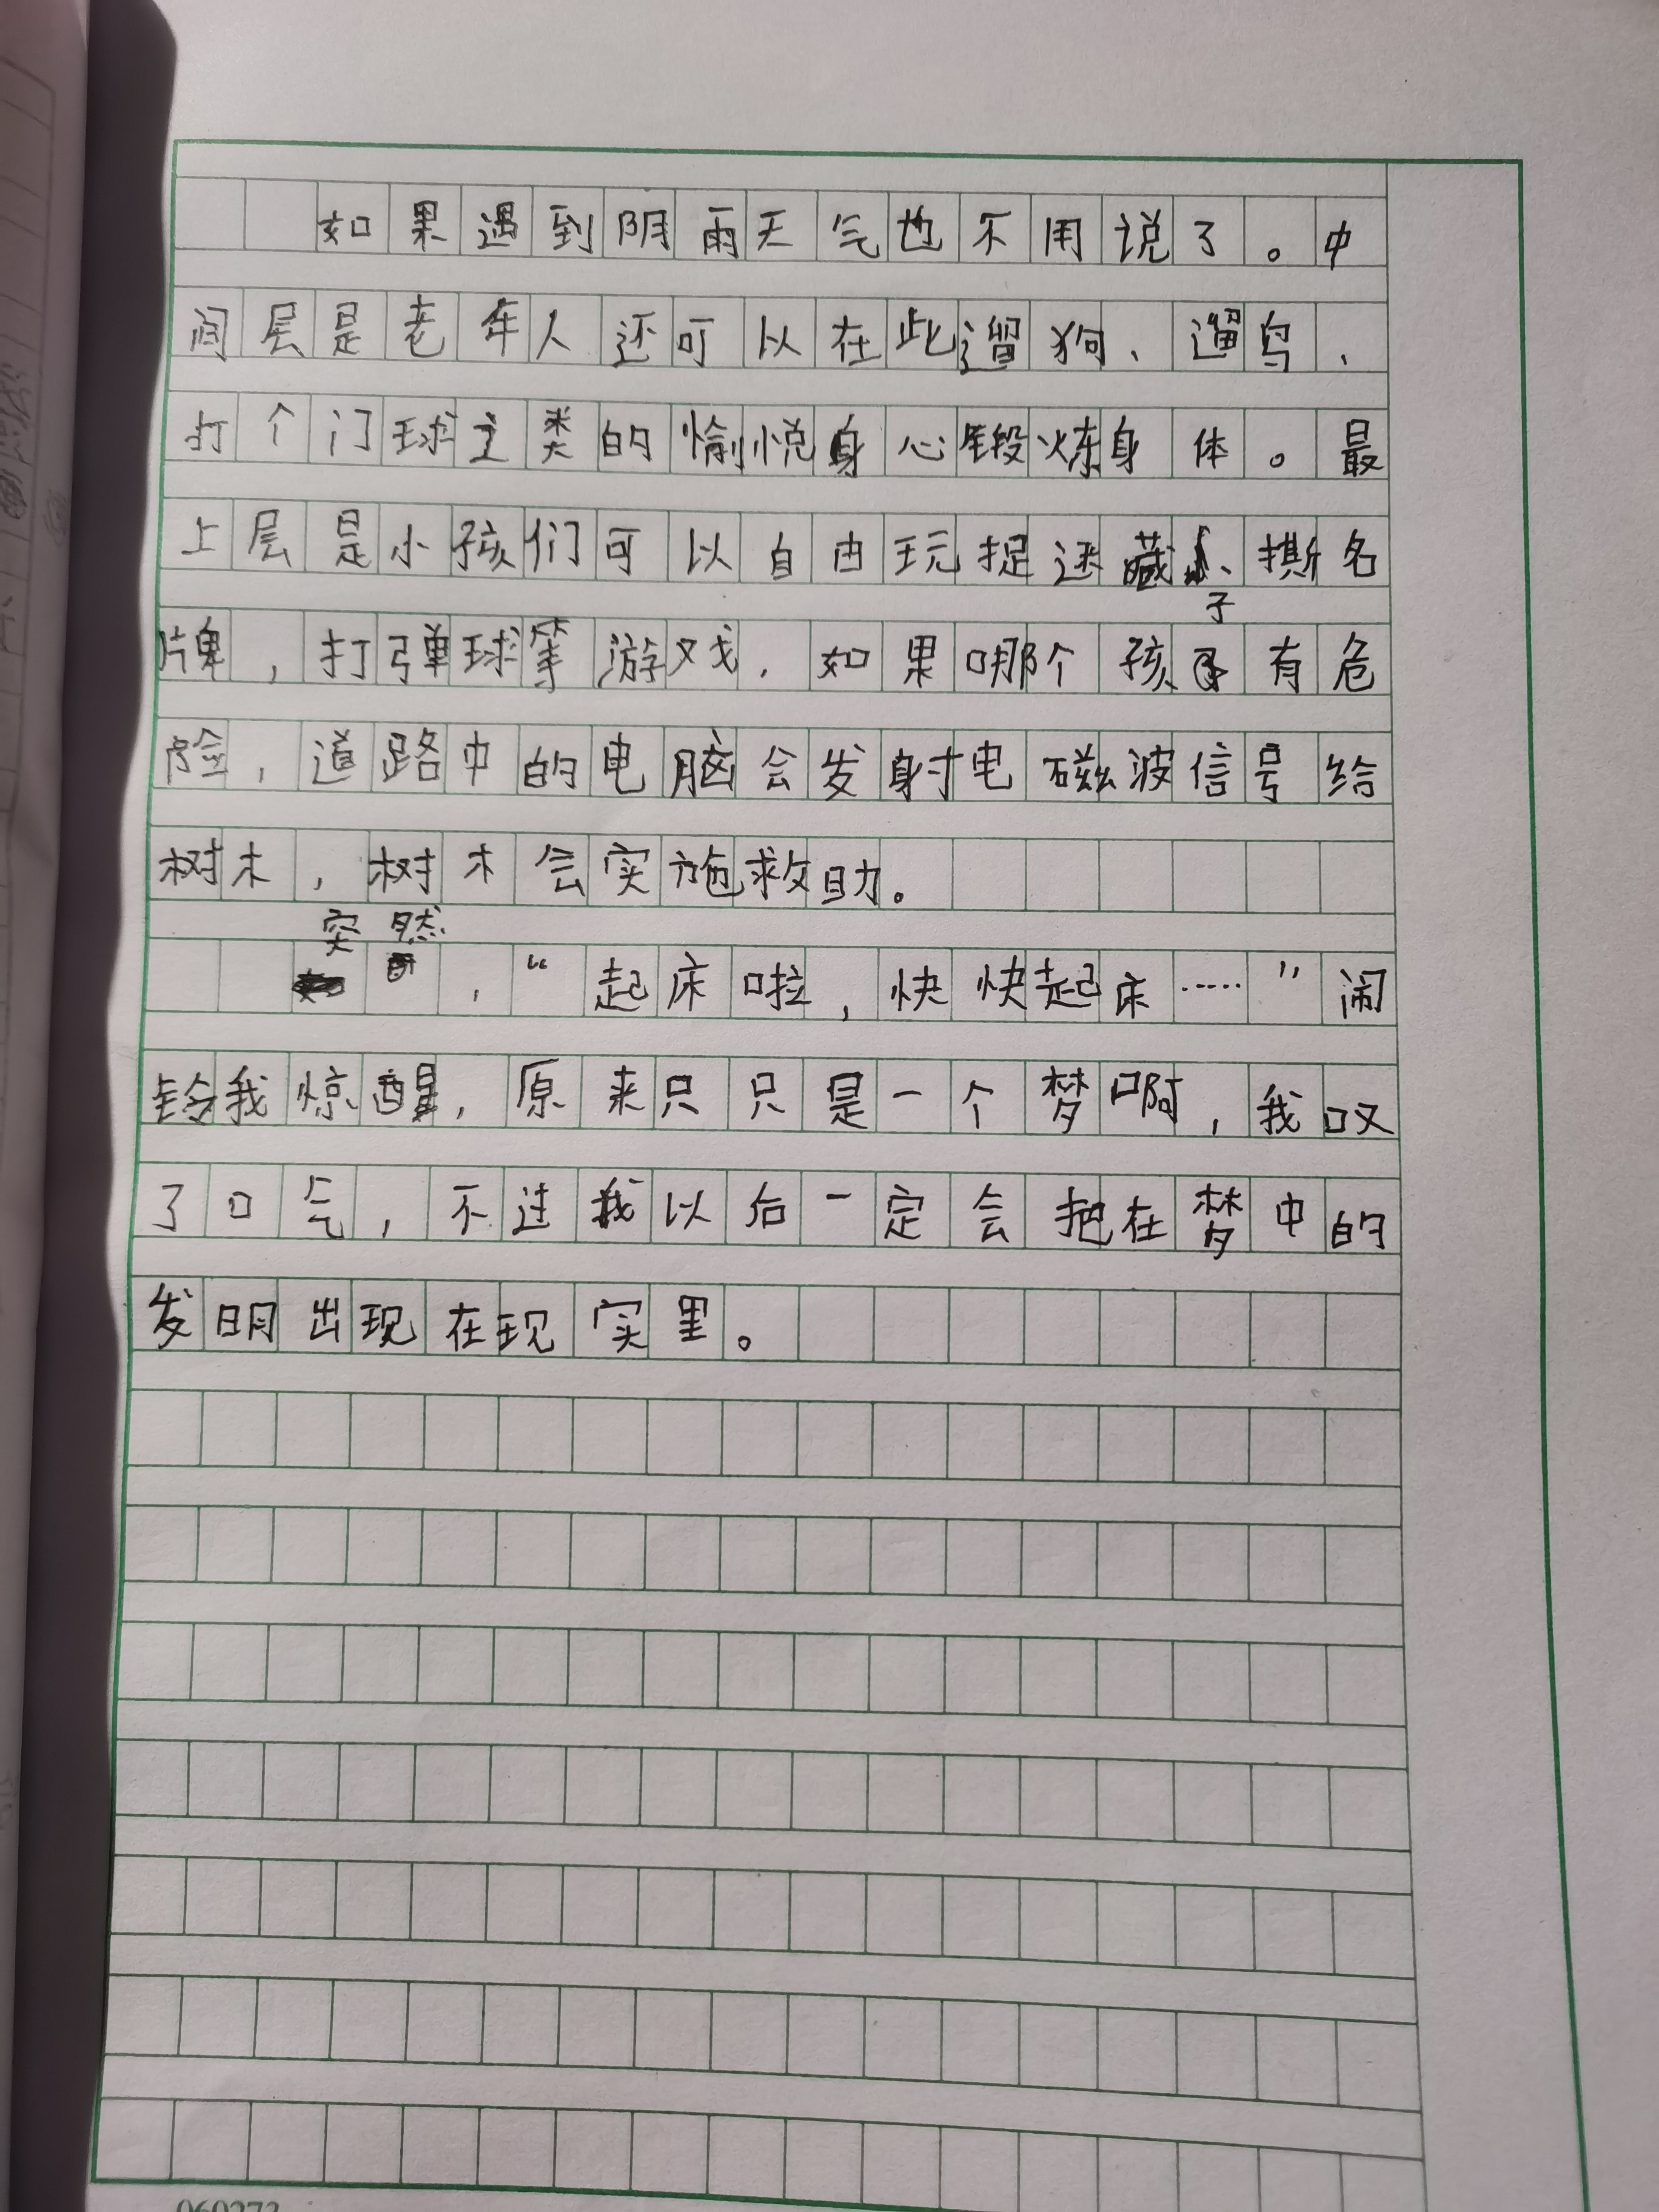 如果遇到阴雨天气也不用说了。中
间层是老年人还可以在此遛狗、遛鸟、
打个门球之类的愉悦身心锻炼身体。最
上层是小孩们可以自由玩捉迷藏、撕名
牌,打弹球等游戏.如果哪个孩子有危
险,道路中的电脑会发射电磁波信号给
树木,树木会实施救助。
突然,“起床啦,快快起床……”闹
铃我惊醒,原来只只是一个梦啊,我叹
了口气,不过我以后一定会把在梦中的
发明出现在现实里。